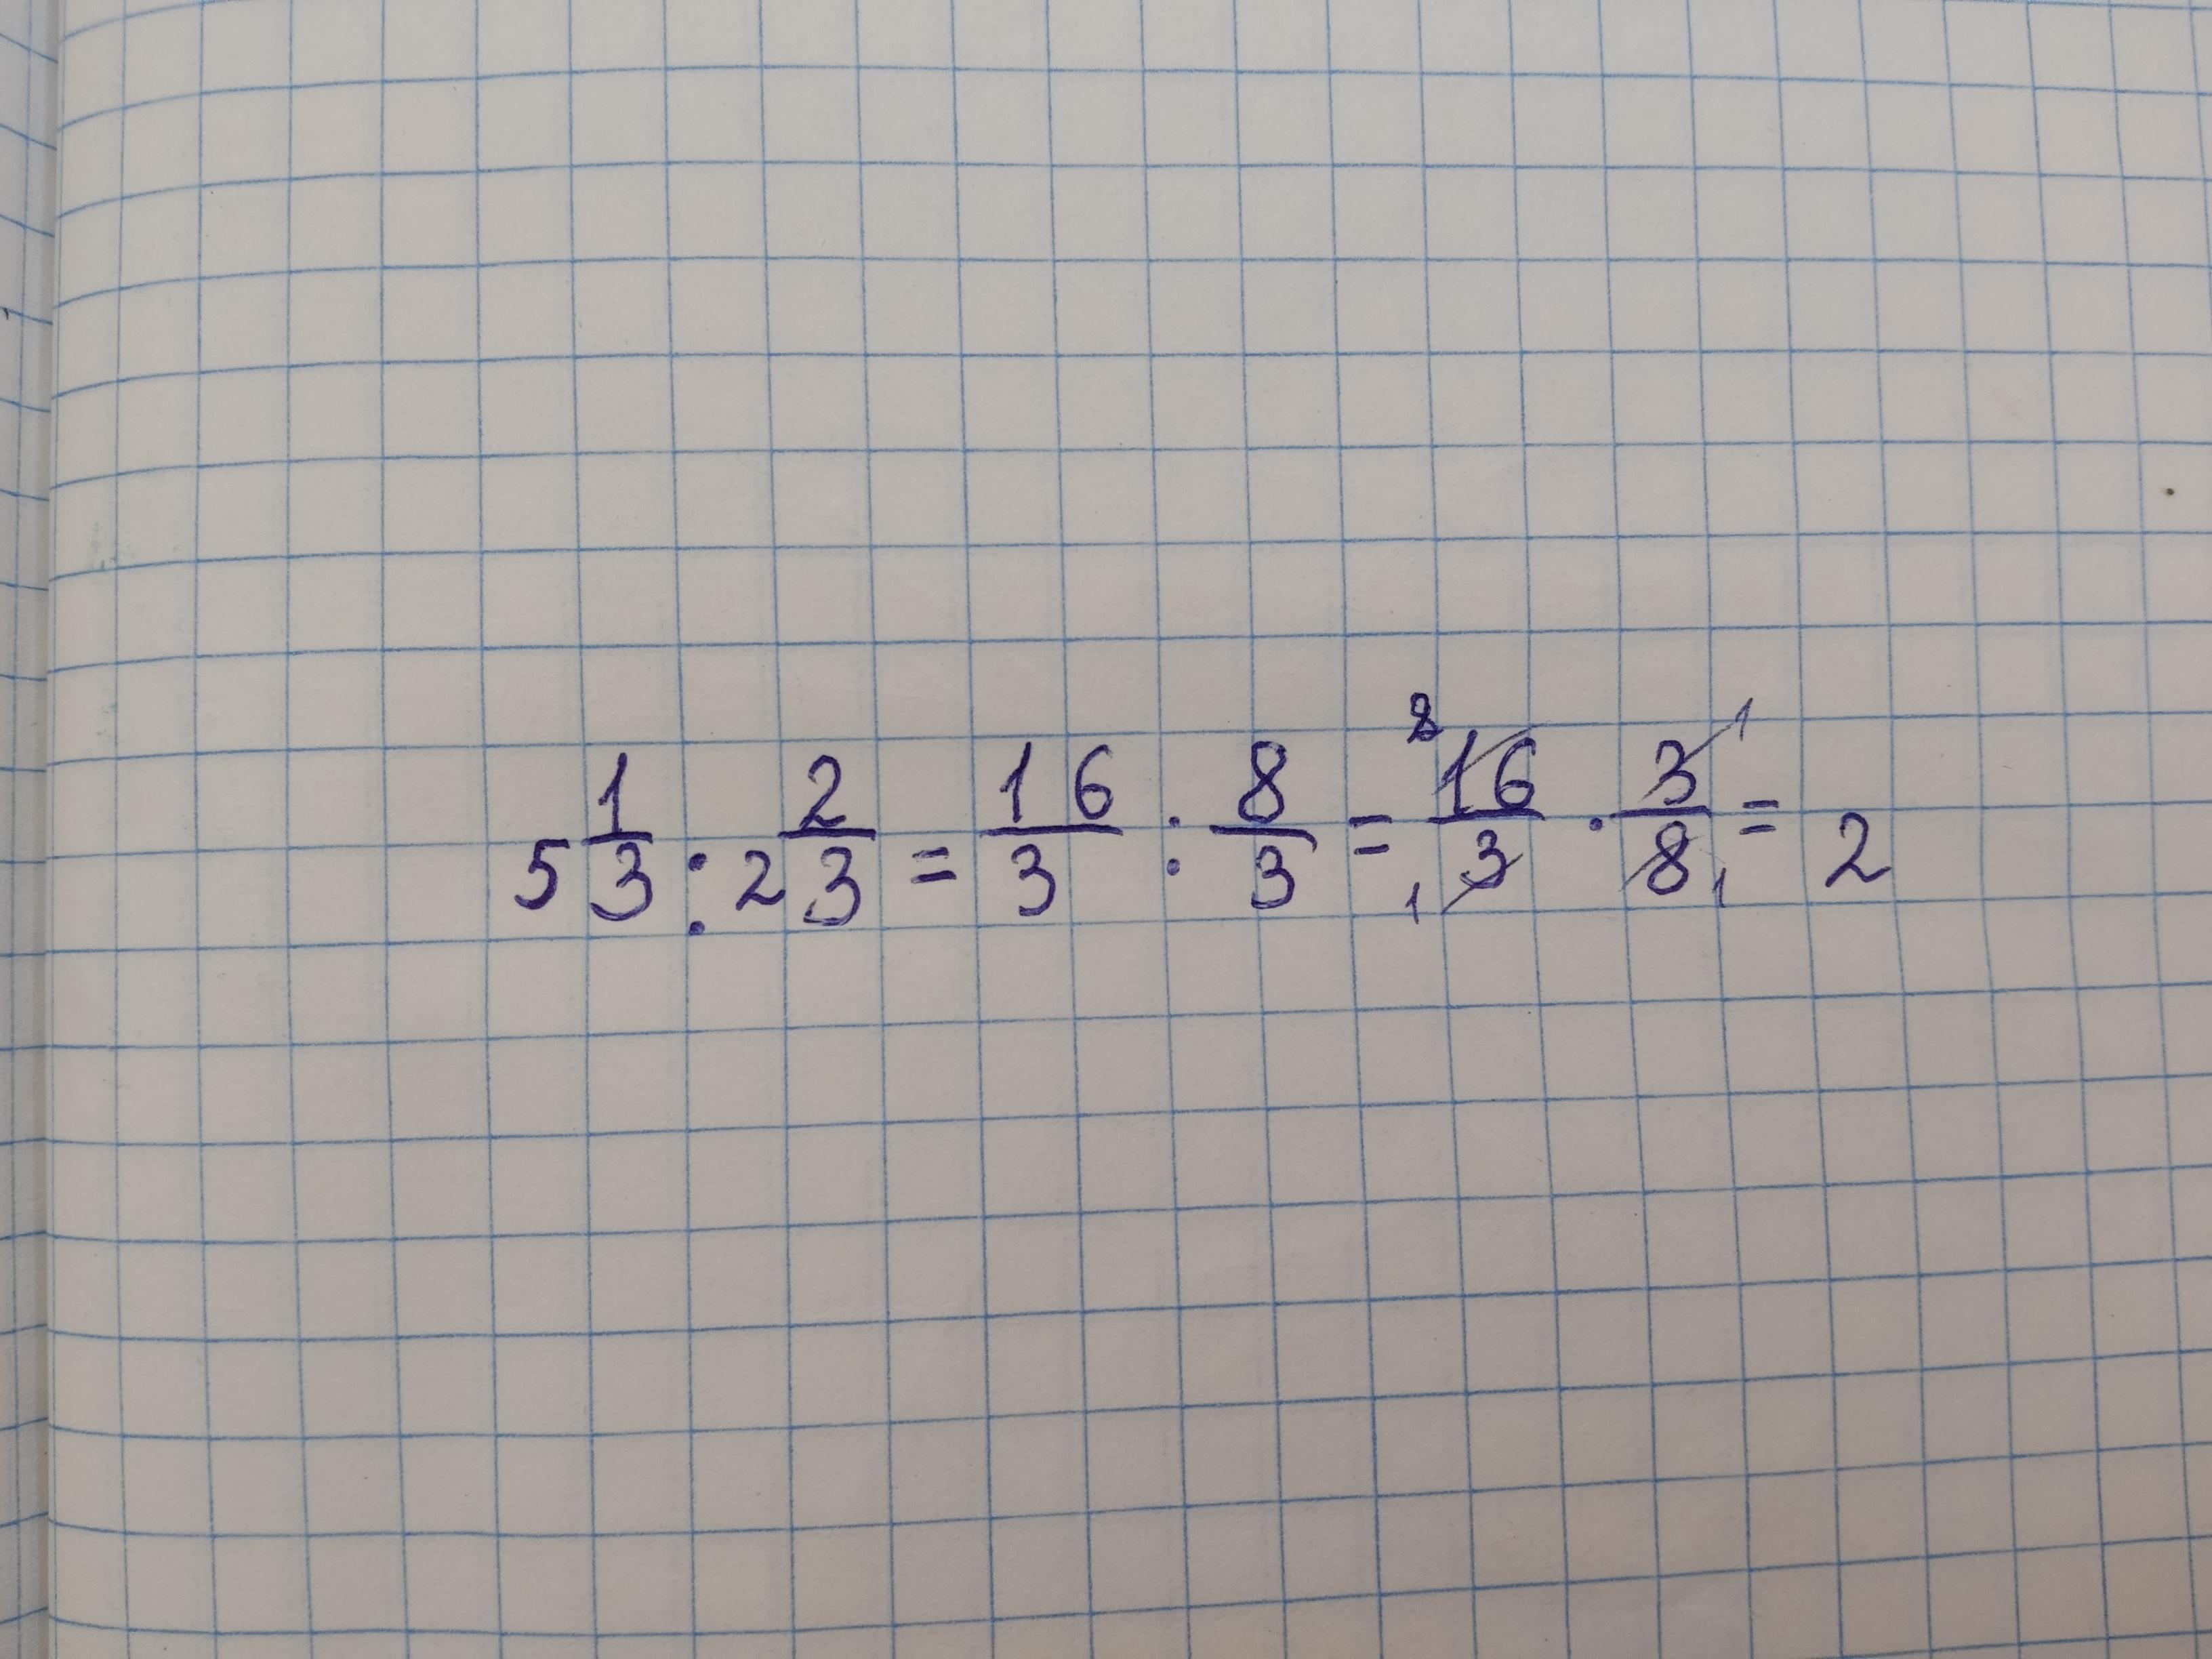 5 1/3 : 2 2/3 = 16/3 : 8/3 = 2 16/3 1 · 3 1/8 1 = 2